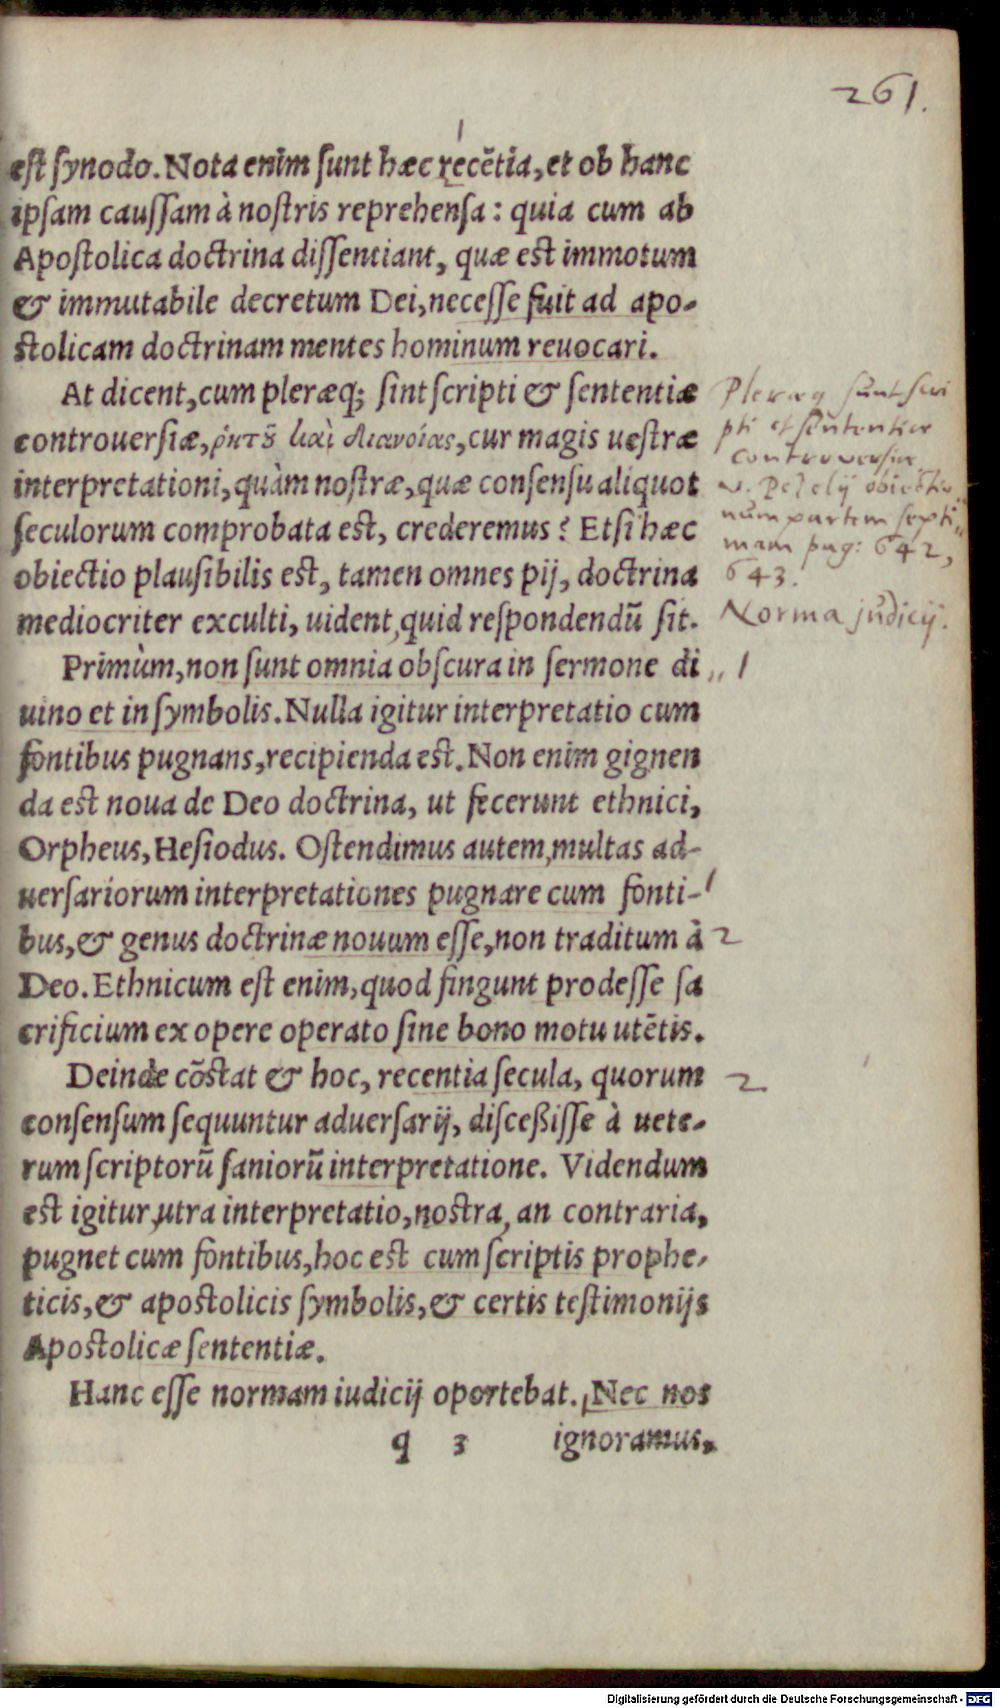 261.
est synodo. Nota enim sunt hæc recētia, et ob hanc
ipsam caussam à nostris reprehensa: quia cum ab
Apostolica doctrina dissentiant, quæ est immotum
& immutabile decretum Dei, necesse fuit ad apo-
stolicam doctrinam mentes hominum reuocari.
At dicent, cum pleræq; sint scripti & sententiæ
controuersiæ, ῥητοῦ καὶ διανοίας, cur magis uestræ
interpretationi, quàm nostræ, quæ consensu aliquot
seculorum comprobata est, crederemus? Etsi hæc
obiectio plausibilis est, tamen omnes pij, doctrina
mediocriter exculti, uident, quid respondendū sit.
Primùm, non sunt omnia obscura in sermone di
uino et in symbolis. Nulla igitur interpretatio cum
fontibus pugnans, recipienda est. Non enim gignen
da est noua de Deo doctrina, ut fecerunt ethnici,
Orpheus, Hesiodus. Ostendimus autem, multas ad-
uersariorum interpretationes pugnare cum fonti-
bus, & genus doctrinæ nouum esse, non traditum à
Deo. Ethnicum est enim, quod fingunt prodesse sa
crificium ex opere operato sine bono motu utētis.
Deinde cōstat & hoc, recentia secula, quorum
consensum sequuntur aduersarij, disceßisse à uete-
rum scriptorū saniorū interpretatione. Videndum
est igitur, utra interpretatio, nostra, an contraria,
pugnet cum fontibus, hoc est cum scriptis prophe-
ticis, & apostolicis symbolis, & certis testimonijs
Apostolicæ sententiæ.
Hanc esse normam iudicij oportebat. Nec nos
q 3 ignoramus,
Pleræq sunt scri
pti et sententiæ
controversiæ
v. Pezelij obiectio
num partem septi
mam pag: 642,
643.
Norma judicij.
1
2
2
Digitalisierung gefördert durch die Deutsche Forschungsgemeinschaft - DFG